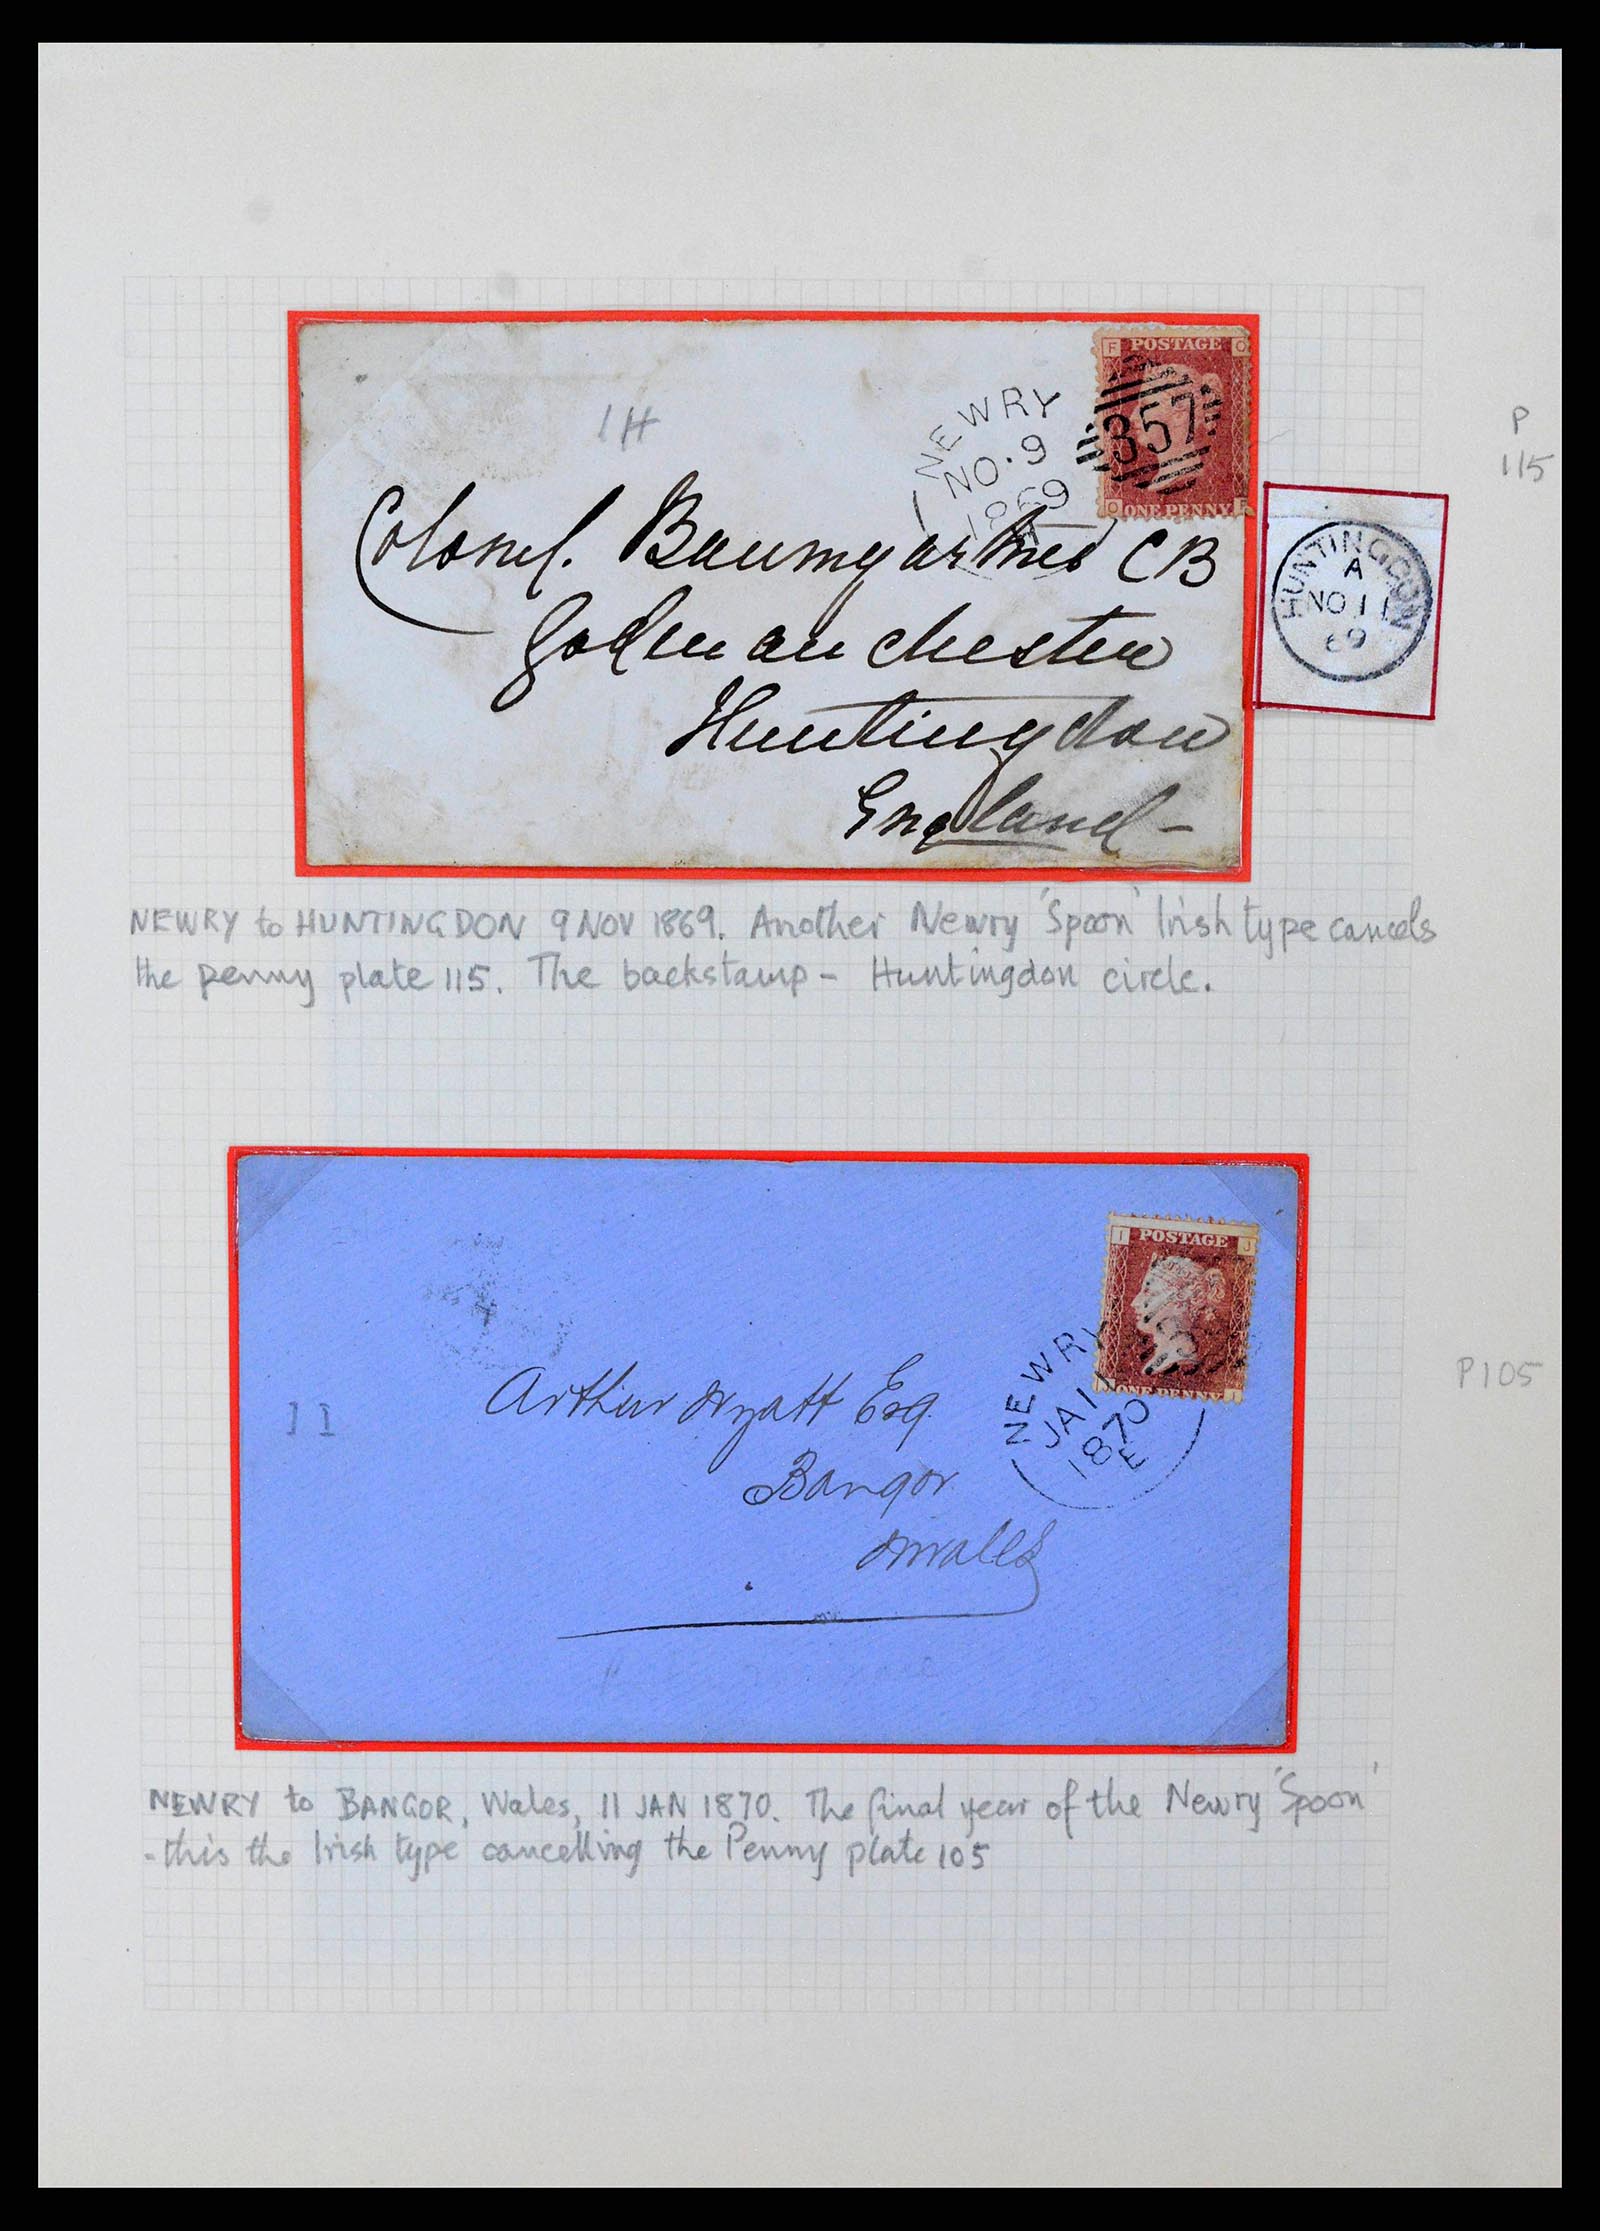 F POSTAGE Q
357
Q ONE PENNY F
NEWRY
NO·9
1869
1H
P
115
Colonel. Baumgartner CB
Godmanchester
Huntingdon
England -
HUNTINGDON
A
NO 11
69
NEWRY to HUNTINGDON 9 NOV 1869. Another Newry 'Spoon' Irish type cancels
the penny plate 115. The backstamp - Huntingdon circle.
I POSTAGE J
ONE PENNY I
NEWRY
JA 11
1870
E
P105
Arthur Wyatt Esq
Bangor
Wales
NEWRY to BANGOR, Wales, 11 JAN 1870. The final year of the Newry 'Spoon'
- this the Irish type cancelling the Penny plate 105